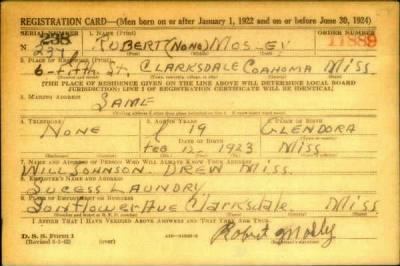 REGISTRATION CARD—(Men born on or after January 1, 1922 and on or before June 30, 1924)
SERIAL NUMBER 1. NAME (Print) ORDER NUMBER
238 ROBERT (NONE) MOSLEY 11889
2. PLACE OF RESIDENCE (Print)
6-FIFTH ST. CLARKSDALE COAHOMA MISS
(Number and street) (Town, township, village, or city) (County) (State)
[THE PLACE OF RESIDENCE GIVEN ON THE LINE ABOVE WILL DETERMINE LOCAL BOARD
JURISDICTION; LINE 2 OF REGISTRATION CERTIFICATE WILL BE IDENTICAL]
3. MAILING ADDRESS
SAME
4. TELEPHONE 5. AGE IN YEARS 6. PLACE OF BIRTH
NONE 19 GLENDORA
DATE OF BIRTH
FEB 12 1923 MISS
7. NAME AND ADDRESS OF PERSON WHO WILL ALWAYS KNOW YOUR ADDRESS
WILL JOHNSON. DREW MISS.
8. EMPLOYER'S NAME AND ADDRESS
SUCESS LAUNDRY
9. PLACE OF EMPLOYMENT OR BUSINESS
SONFLOWER AVE Clarksdale MISS
(Number and street or R. F. D. number) (Town) (County) (State)
I AFFIRM THAT I HAVE VERIFIED ABOVE ANSWERS AND THAT THEY ARE TRUE.
D. S. S. Form 1
Robert